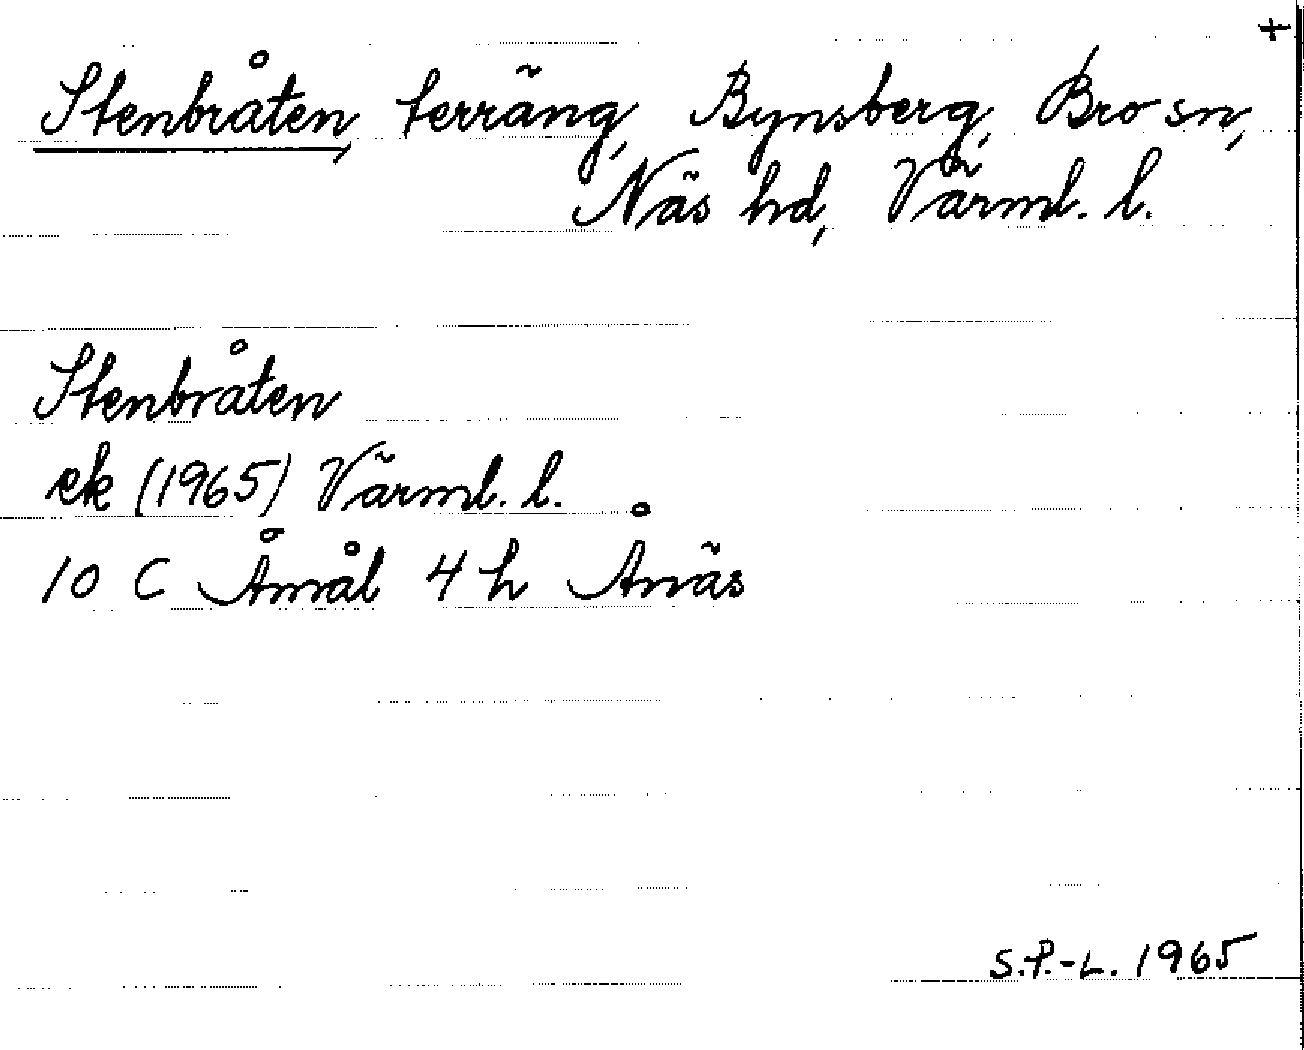 +
Stenbråten, terräng, Bynsberg, Bro sn,
Näs hd, Värml. l.
Stenbråten
ek (1965) Värml. l.
10 C Åmål 4 h Ånäs
S.P.-L. 1965